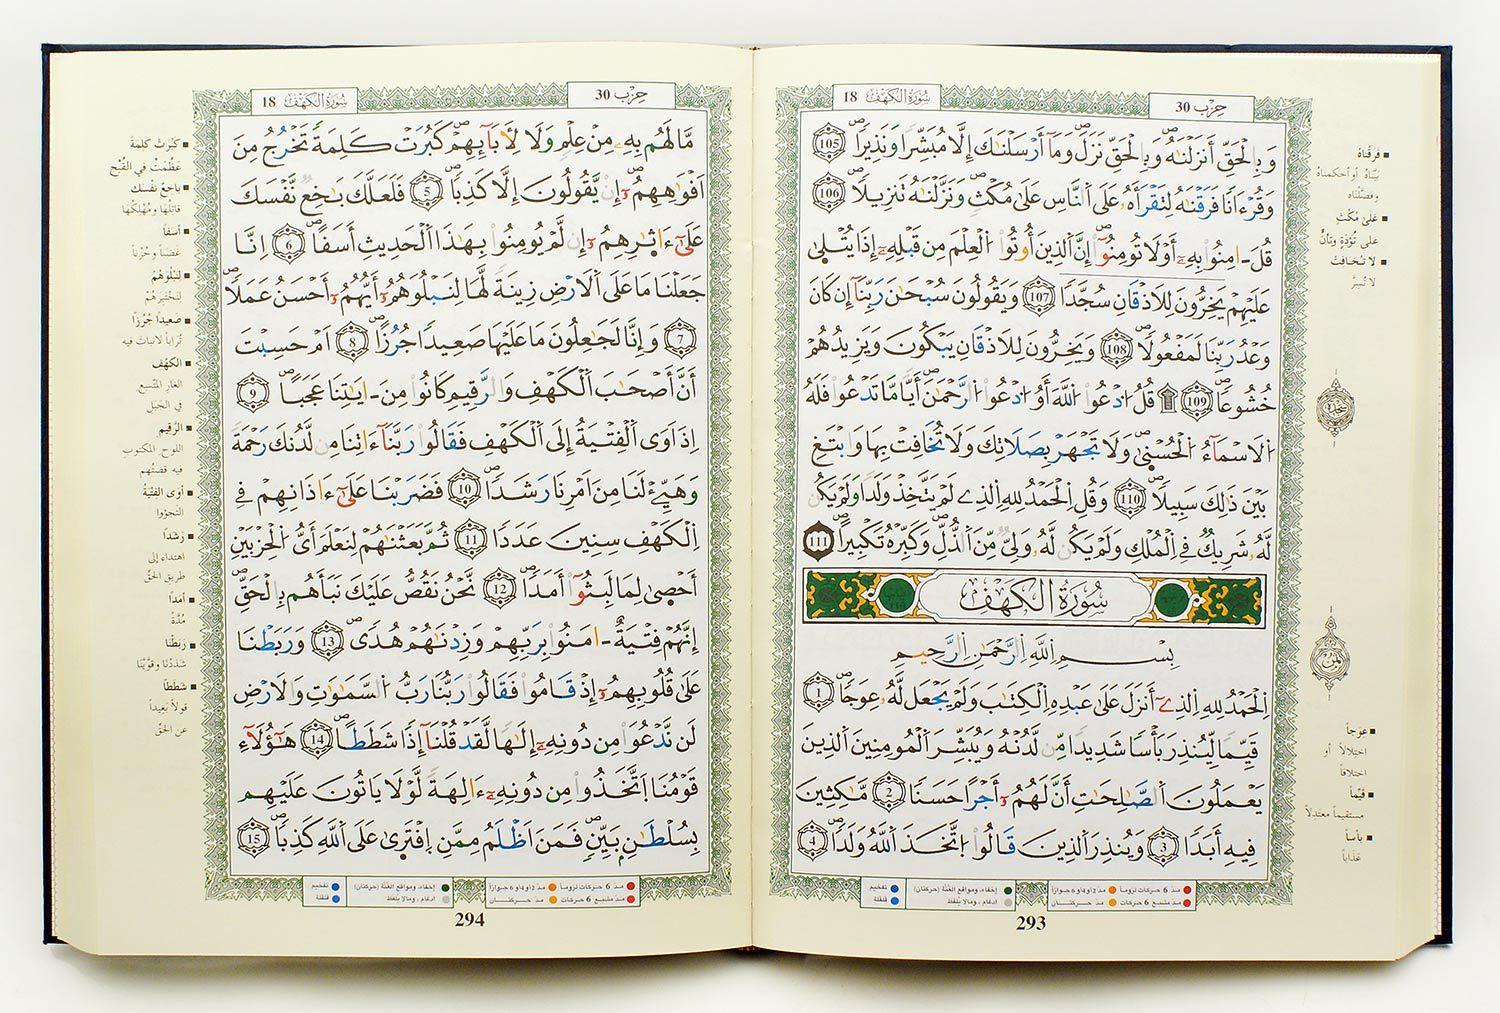 سُورَةُ الكَهْف 18
حِزْب 30
وَبِالْحَقِّ أَنزَلْنَٰهُ وَبِالْحَقِّ نَزَلَ وَمَآ أَرْسَلْنَٰكَ إِلَّا مُبَشِّرًا وَنَذِيرًا 105
وَقُرْءَانًا فَرَقْنَٰهُ لِتَقْرَأَهُۥ عَلَى النَّاسِ عَلَىٰ مُكْثٍ وَنَزَّلْنَٰهُ تَنزِيلًا 106
قُلَ ـ امِنُوا بِهِۦٓ أَوْ لَا تُومِنُوٓا إِنَّ الَّذِينَ أُوتُوا الْعِلْمَ مِن قَبْلِهِۦٓ إِذَا يُتْلَىٰ
عَلَيْهِمْ يَخِرُّونَ لِلَاذْقَانِ سُجَّدًا 107 وَيَقُولُونَ سُبْحَٰنَ رَبِّنَآ إِن كَانَ
وَعْدُ رَبِّنَا لَمَفْعُولًا 108 وَيَخِرُّونَ لِلَاذْقَانِ يَبْكُونَ وَيَزِيدُهُمْ
خُشُوعًا 109 ۩ قُلُ ادْعُوا اللَّهَ أَوُ ادْعُوا الرَّحْمَٰنَ أَيًّا مَّا تَدْعُوا فَلَهُ
الَاسْمَآءُ الْحُسْنَىٰ وَلَا تَجْهَرْ بِصَلَاتِكَ وَلَا تُخَافِتْ بِهَا وَابْتَغِ
بَيْنَ ذَٰلِكَ سَبِيلًا 110 وَقُلِ الْحَمْدُ لِلهِ الذِے لَمْ يَتَّخِذْ وَلَدًا وَلَمْ يَكُن
لَّهُۥ شَرِيكٌ فِے الْمُلْكِ وَلَمْ يَكُن لَّهُۥ وَلِيٌّ مِّنَ الذُّلِّ وَكَبِّرْهُ تَكْبِيرًا 111
سُورَةُ الكَهْفِ
بِسْمِ اللَّهِ الرَّحْمَٰنِ الرَّحِيمِ
الْحَمْدُ لِلهِ الذِےٓ أَنزَلَ عَلَىٰ عَبْدِهِ الْكِتَٰبَ وَلَمْ يَجْعَل لَّهُۥ عِوَجًا 1
قَيِّمًا لِّيُنذِرَ بَأْسًا شَدِيدًا مِّن لَّدُنْهُ وَيُبَشِّرَ الْمُومِنِينَ الذِينَ
يَعْمَلُونَ الصَّٰلِحَٰتِ أَنَّ لَهُمُۥٓ أَجْرًا حَسَنًا 2 مَّٰكِثِينَ
فِيهِ أَبَدًا 3 وَيُنذِرَ الذِينَ قَالُوا اتَّخَذَ اللَّهُ وَلَدًا 4
فَرَقْنَاهُ
بَيَّنَاهُ أو أحكمناهُ
وفصَّلناه
عَلَىٰ مُكْثٍ
على تُؤَدَةٍ وتَأَنٍّ
لَا تُخَافِتْ
لا تُسِرَّ
عِوَجاً
اختلالاً أو
اختلافاً
قَيِّماً
مستقيماً معتدلاً
بأساً
عَذَاباً
مدّ 6 حركات لزوماً
مدّ 2 أو 4 أو 6 جوازاً
إخفاء، ومواقع الغُنَّة (حركتان)
تفخيم
مدّ مشبع 6 حركات
مدّ حركتان
ادغام، وما لا يُلفَظ
قلقلة
293
سُورَةُ الكَهْف 18
حِزْب 30
مَّا لَهُم بِهِۦ مِنْ عِلْمٍ وَلَا لِأَبَآئِهِمْ كَبُرَتْ كَلِمَةً تَخْرُجُ مِنَ
اَفْوَٰهِهِمُۥٓ إِنْ يَّقُولُونَ إِلَّا كَذِبًا 5 فَلَعَلَّكَ بَٰخِعٌ نَّفْسَكَ
عَلَىٰٓ ءَاثَٰرِهِمُۥٓ إِن لَّمْ يُومِنُوا بِهَٰذَا الْحَدِيثِ أَسَفًا 6 اِنَّا
جَعَلْنَا مَا عَلَى الَارْضِ زِينَةً لَّهَا لِنَبْلُوَهُمُۥٓ أَيُّهُمُۥٓ أَحْسَنُ عَمَلًا
7 وَإِنَّا لَجَٰعِلُونَ مَا عَلَيْهَا صَعِيدًا جُرُزًا 8 اَمْ حَسِبْتَ
أَنَّ أَصْحَٰبَ الْكَهْفِ وَالرَّقِيمِ كَانُوا مِنَ ـ ايَٰتِنَا عَجَبًا 9
اِذَ اَوَى الْفِتْيَةُ إِلَى الْكَهْفِ فَقَالُوا رَبَّنَآ ءَاتِنَا مِن لَّدُنكَ رَحْمَةً
وَهَيِّئْ لَنَا مِنَ اَمْرِنَا رَشَدًا 10 فَضَرَبْنَا عَلَىٰٓ ءَاذَانِهِمْ فِے
الْكَهْفِ سِنِينَ عَدَدًا 11 ثُمَّ بَعَثْنَٰهُمْ لِنَعْلَمَ أَيُّ الْحِزْبَيْنِ
أَحْصَىٰ لِمَا لَبِثُوٓا أَمَدًا 12 نَّحْنُ نَقُصُّ عَلَيْكَ نَبَأَهُم بِالْحَقِّ
إِنَّهُمْ فِتْيَةٌ ـ امَنُوا بِرَبِّهِمْ وَزِدْنَٰهُمْ هُدًى 13 وَرَبَطْنَا
عَلَىٰ قُلُوبِهِمُۥٓ إِذْ قَامُوا فَقَالُوا رَبُّنَا رَبُّ السَّمَٰوَٰتِ وَالَارْضِ
لَن نَّدْعُوَا مِن دُونِهِۦٓ إِلَٰهًا لَّقَدْ قُلْنَآ إِذًا شَطَطًا 14 هَٰٓؤُلَآءِ
قَوْمُنَا اتَّخَذُوا مِن دُونِهِۦٓ ءَالِهَةً لَّوْلَا يَاتُونَ عَلَيْهِم
بِسُلْطَٰنٍ بَيِّنٍ فَمَنَ اَظْلَمُ مِمَّنِ افْتَرَىٰ عَلَى اللَّهِ كَذِبًا 15
كَبُرَتْ كَلِمَةً
عَظُمَتْ في القُبْحِ
بَاخِعٌ نَفْسَكَ
قاتِلُهَا ومُهْلِكُهَا
أسَفاً
غضباً وحُزْناً
لِنَبْلُوَهُمْ
لنختبرهُمْ
صَعِيداً جُرُزاً
تُرَاباً لا نبات فيه
الكَهْف
الغار المتّسع
في الجبَل
الرَّقِيم
اللوح المكتوب
فيه قصتُهم
أوَى الفِتْيَةُ
التجؤوا
رَشَداً
اهتداء إلى
طريق الحَقّ
أمَداً
مُدَّةً
رَبَطْنَا
شدَدْنَا وقوَّيْنَا
شَطَطاً
قولاً بَعيداً
عن الحَقّ
مدّ 6 حركات لزوماً
مدّ 2 أو 4 أو 6 جوازاً
إخفاء، ومواقع الغُنَّة (حركتان)
تفخيم
مدّ مشبع 6 حركات
مدّ حركتان
ادغام، وما لا يُلفَظ
قلقلة
294